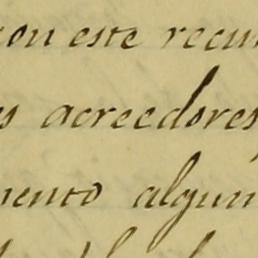 con este recu
es acreedores
mento algun